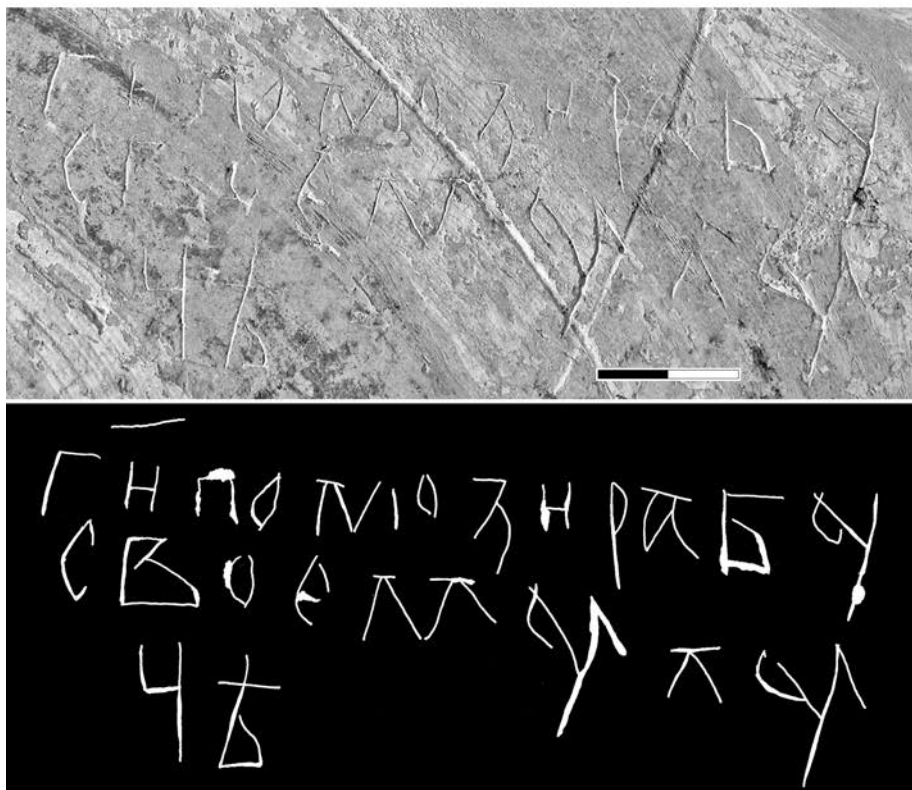 Г҃и помози рабу
своему лу
чѣ